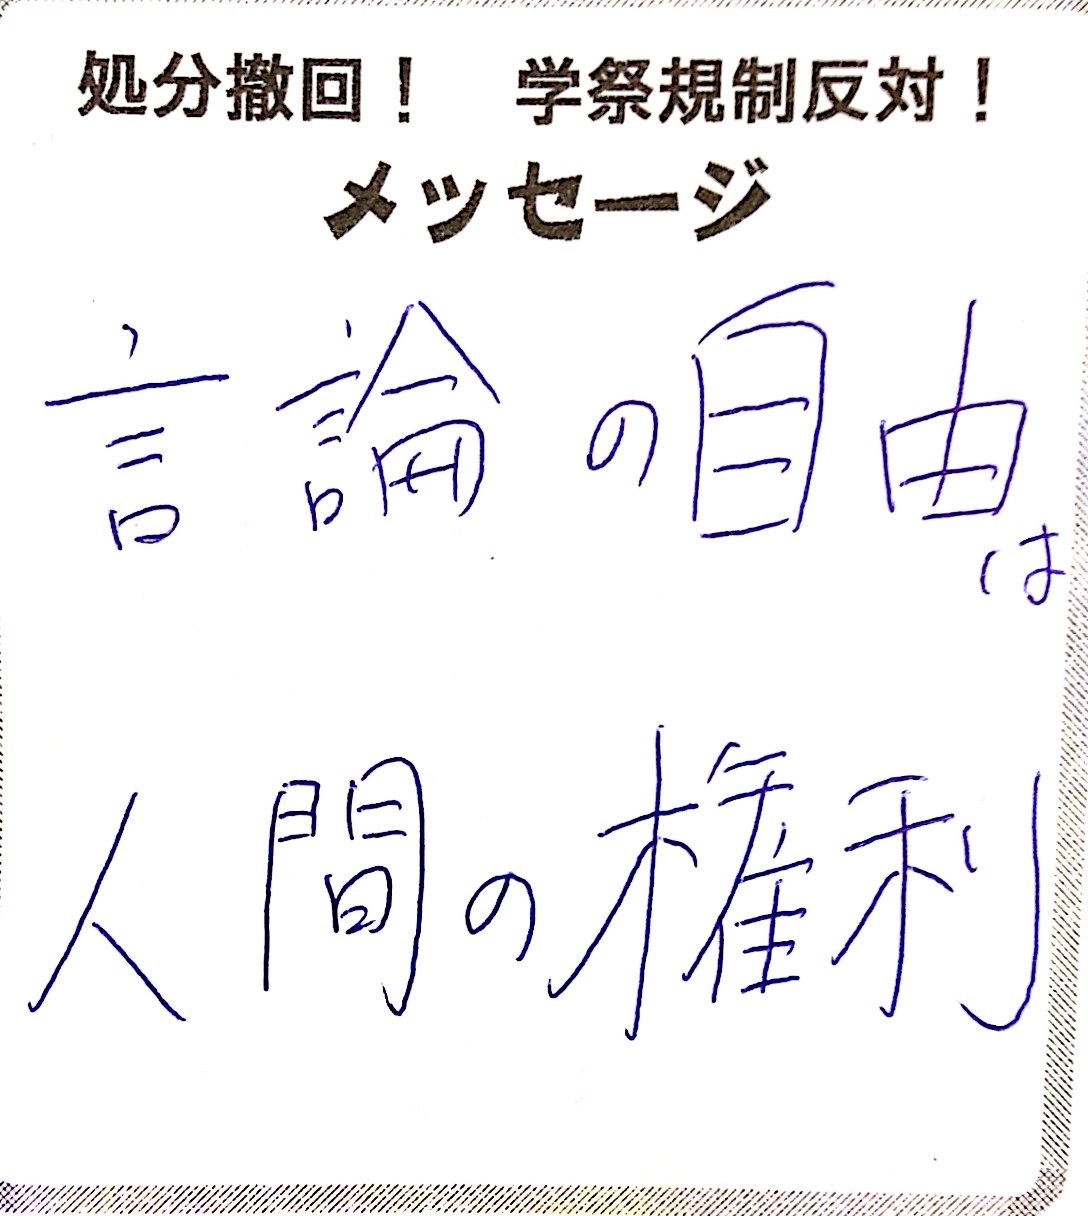 処分撤回！　学祭規制反対！
メッセージ
言論の自由は
人間の権利